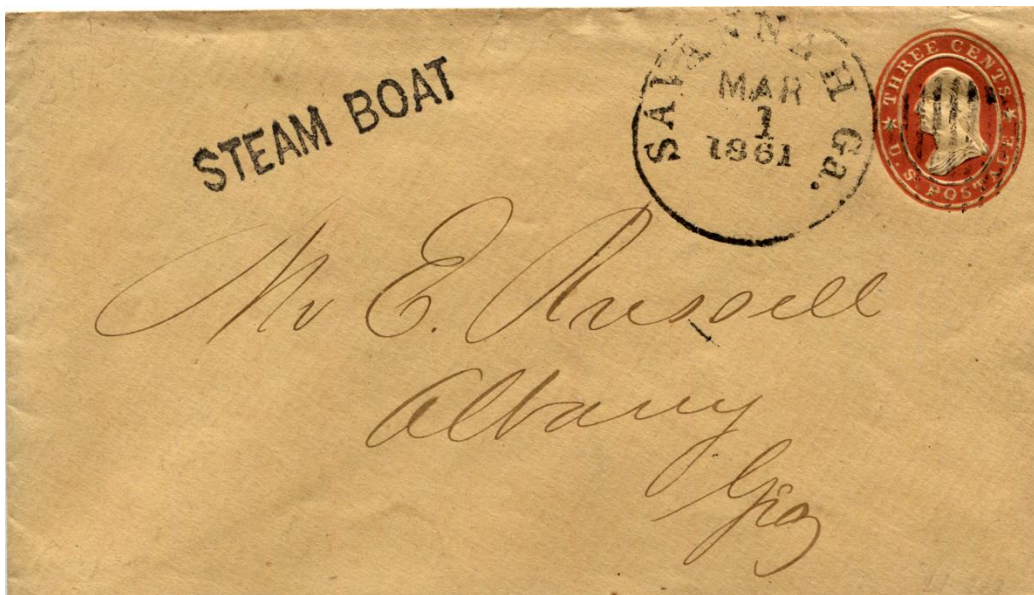 STEAM BOAT
SAVANNAH Ga.
MAR
1
1861
THREE CENTS
U.S. POSTAGE
Mr E. Russell
Albany